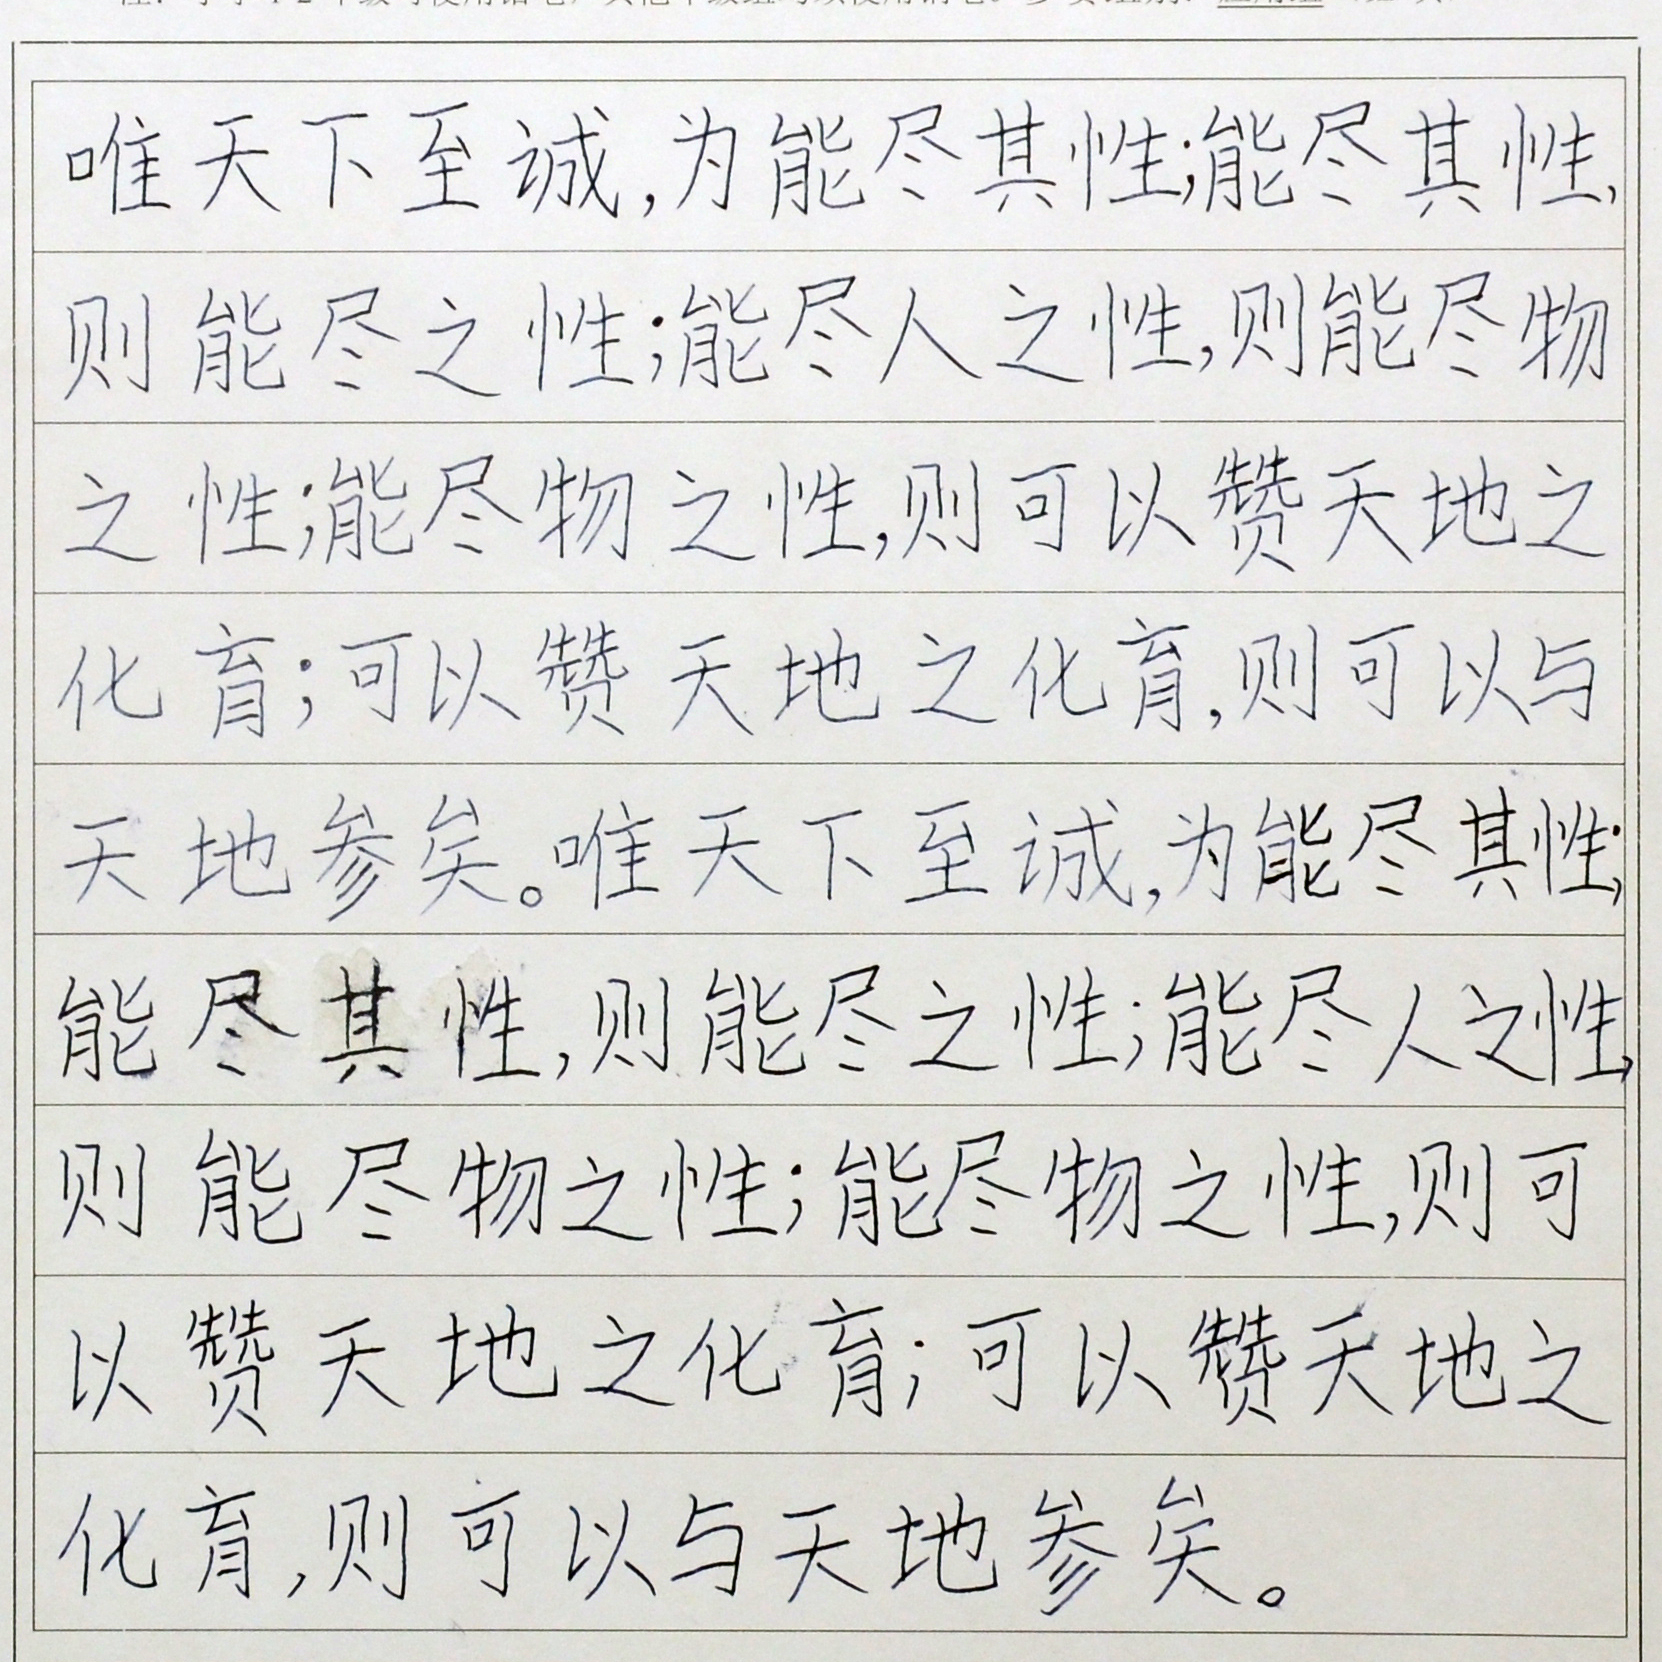 唯天下至诚,为能尽其性;能尽其性,
则能尽之性;能尽人之性,则能尽物
之性;能尽物之性,则可以赞天地之
化育;可以赞天地之化育,则可以与
天地参矣。唯天下至诚,为能尽其性;
能尽其性,则能尽之性;能尽人之性,
则能尽物之性;能尽物之性,则可
以赞天地之化育;可以赞天地之
化育,则可以与天地参矣。